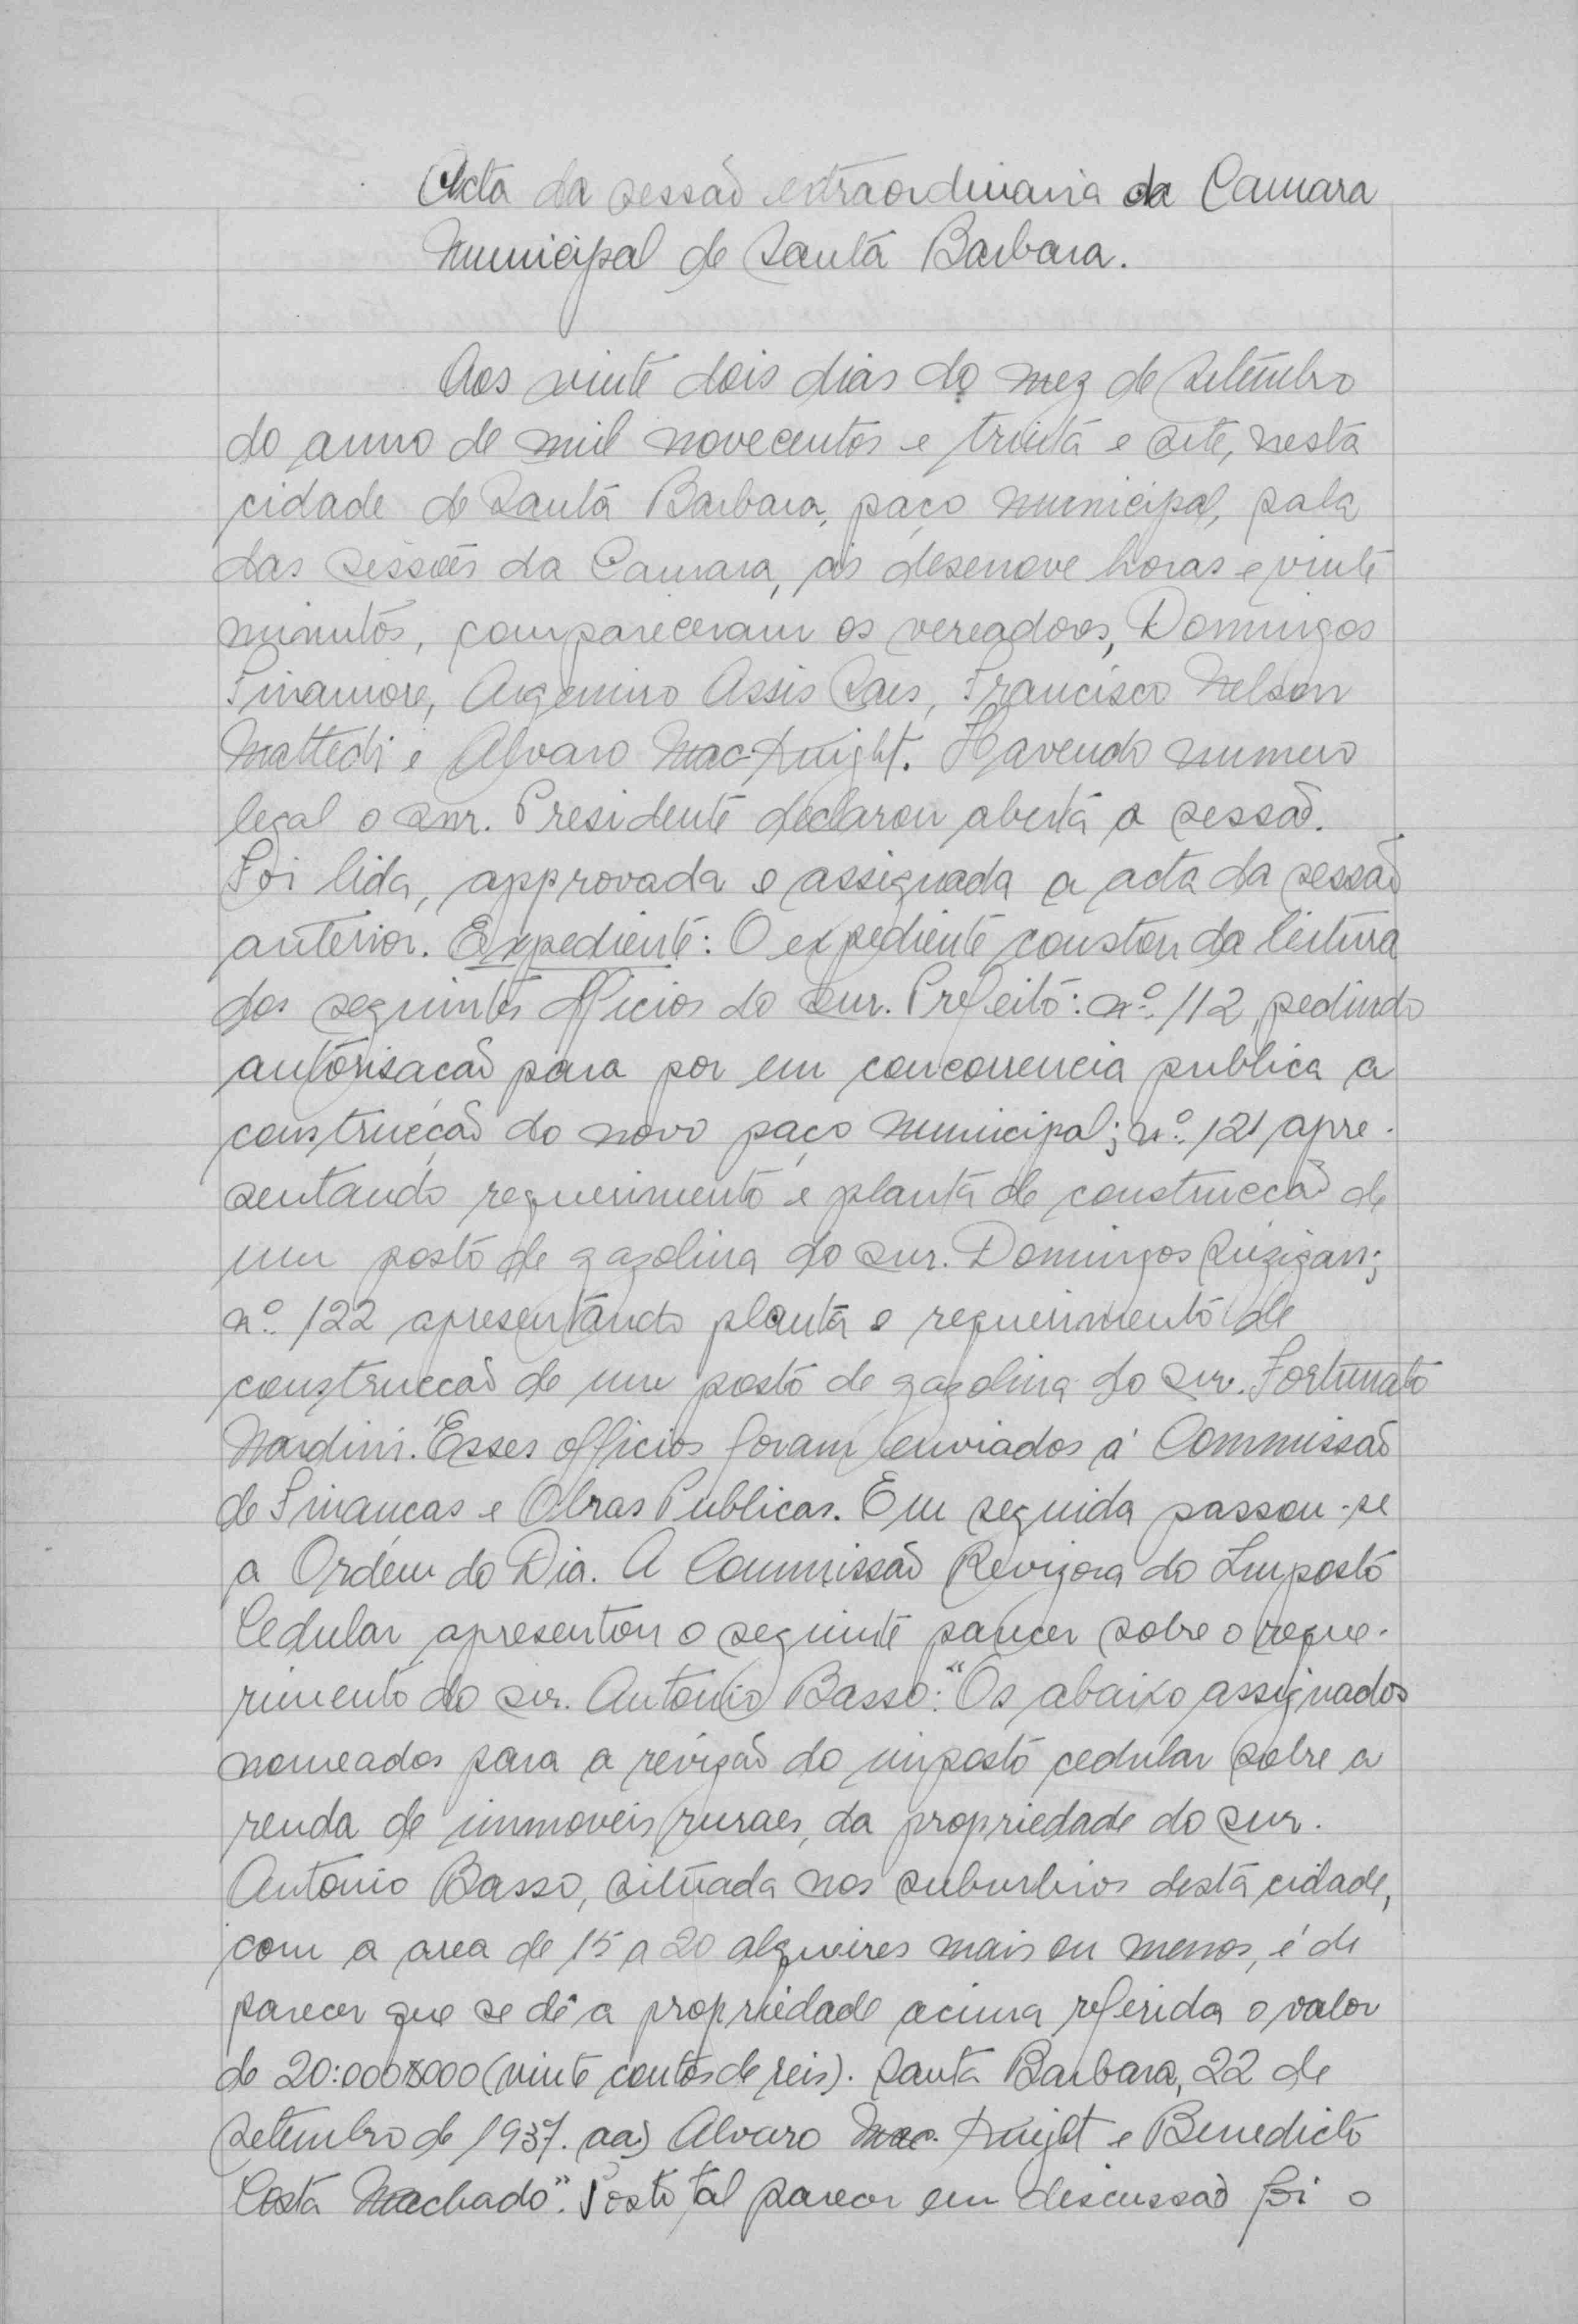 Acta da sessão extraordinaria da Camara
Municipal de Santa Barbara.
Aos vinte dois dias do mez de Setembro
do anno de mil novecentos e trinta e sete, nesta
cidade de Santa Barbara, paço municipal, sala
das sessões da Camara, ás desenove horas e vinte
minutos, compareceram os vereadores, Domingos
Finamore, Argemiro Assis Saes, Francisco Nelson
Mattedi e Alvaro Mac-Knight. Havendo numero
legal o snr. Presidente declarou aberta a sessão.
Foi lida, approvada e assignada a acta da sessão
anterior. Expediente: O expediente constou da leitura
dos seguintes officios do snr. Prefeito: nº 112, pedindo
autorisacão para por em concorrencia publica a
construcção do novo paço municipal; nº 121 apre-
sentando requerimento e planta de construccão de
um posto de gazolina do snr. Domingos
nº 122 apresentando planta e requerimento de
construccão de um posto de gazolina do snr. Fortunato
Nardini. Esses officios foram enviados á Commissão
de Finanças e Obras Publicas. Em seguida passou-se
a Ordem do Dia. A Commissão Revizora do Imposto
Cedular apresentou o seguinte parecer sobre o reque-
rimento do snr. Antonio Basso: "Os abaixo assignados
nomeados para a revizão do imposto cedular sobre a
renda de immoveis ruraes, da propriedade do snr.
Antonio Basso, situada nos suburbios desta cidade,
com a area de 15 a 20 alqueires mais ou menos, é de
parecer que se dê a propriedade acima referida o valor
de 20:000$000 (vinte contos de reis). Santa Barbara, 22 de
Setembro de 1937. aa) Alvaro Mac-Knight e Benedicto
Costa Machado". Posto tal parecer em discussão foi o